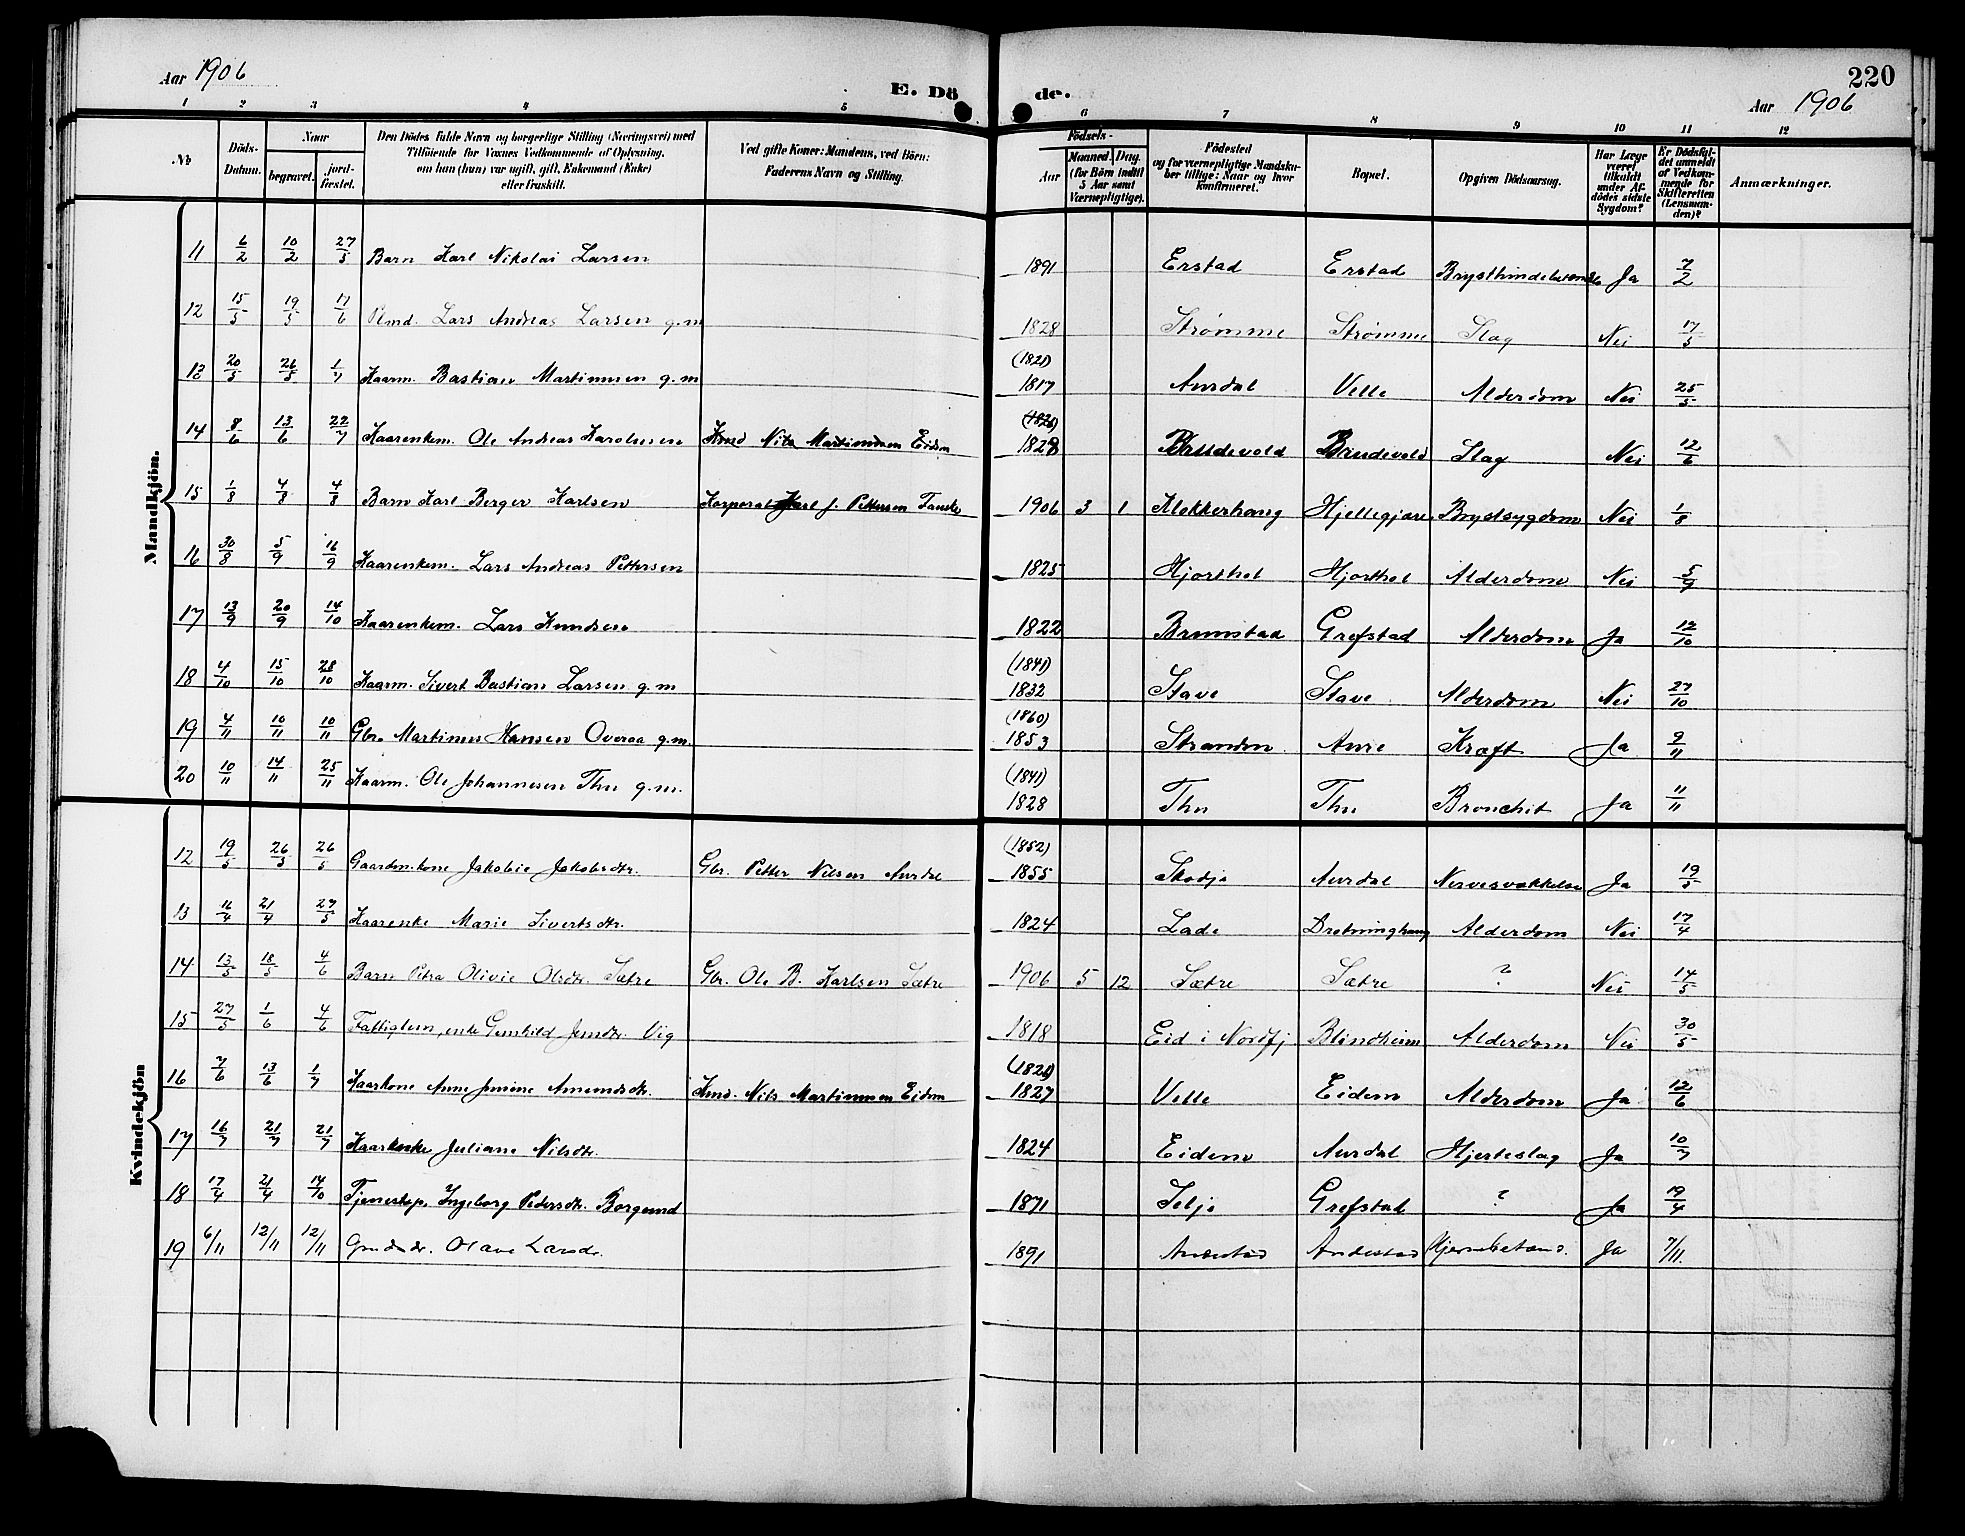 Aar 1906
E. Dö de.
220
Aar 1906
1 2 3 4 5 6 7 8 9 10 11 12
No
Döds-Datum.
Naar
begravet.
jord-fæstet.
Den Dödes fulde Navn og borgerlige Stilling (Næringsvei) med
Tilföiende for Voxnes Vedkommende af Oplysning,
om han (hun) var ugift, gift, Enkemand (Enke)
eller fraskilt.
Ved gifte Koner: Mandens, ved Börn:
Faderens Navn og Stilling.
Födsels-
Aar
Maaned. Dag.
(for Börn indtil
5 Aar samt
Værnepligtige).
Födested
og for værnepligtige Mandska-
ber tillige: Naar og hvor
konfirmeret.
Bopæl.
Opgiven Dödsaarsag.
Har Læge
været
tilkaldt
under Af-
dödes sidste
Sygdom?
Er Dödsfal-
det anmeldt
af Vedkom-
mende for
Skifteretten
(Lensman-
den)?
Anmærkninger.
Mandkjön.
11 6/2 10/2 27/5 Barn Karl Nikolai Larsen 1891 Erstad Erstad Ja 7/2
12 15/5 19/5 17/6 Lars Andreas Larsen g.m 1828 Strømme Strømme Slag Nei 17/5
13 20/5 26/5 1/7 Kaarm. Bastian Martinusen g.m (1821) 1817 Aurdal Velle Alderdom Nei 25/5
14 8/6 13/6 22/7 Kaarenkem. Ole Andreas Karolusen Kmd Nils Martinusen Eidem 1828 Brudevold Brudevold Slag Nei 12/6
15 1/8 4/8 4/8 Barn Karl Berger Karlsen Korporal Karl J. Pettersen 1906 3 1 Klokkerhaug Brystsygdom Nei 1/8
16 30/8 5/9 16/9 Kaarenkem. Lars Andreas Pettersen 1825 Hjorthol Hjorthol Alderdom Nei 5/9
17 13/9 20/9 14/10 Kaarenkem. Lars Knudsen 1822 Brunstad Grefstad Alderdom Ja 12/10
18 4/10 15/10 28/10 Kaarm. Sivert Bastian Larsen g.m (1841) 1832 Stave Stave Alderdom Nei 27/10
19 4/11 10/11 10/11 Gbr. Martinus Hansen Overaa g.m. (1860) 1853 Aure Kræft Ja 9/11
20 10/11 14/11 25/11 Kaarm. Ole Johannesen Thu g.m. (1841) 1828 Thu Thu Bronchit Ja 11/11
Kvindekjön
12 19/5 26/5 26/5 Gaardm.kone Jakobie Jakobsdtr. Gbr. Petter Nilsen Aurdal (1852) 1855 Skodje Aurdal Nervesvækkelse Ja 19/5
13 16/4 21/4 27/5 Kaarenke Marie Sivertsdtr. 1824 Lade Alderdom Nei 17/4
14 13/5 18/5 4/6 Barn Petra Olivie Olsdtr. Sætre Gbr. Ole B. Karlsen Sætre 1906 5 12 Sætre Sætre ? Nei 14/5
15 27/5 1/6 4/6 Fattiglem, enke Gunhild Vig 1818 Eid i Nordfj Blindheim Alderdom Nei 30/5
16 7/6 13/6 1/7 Kaarkone Anne Jensine Amundsdtr. Kmd. Nils Martinusen Eidem 1827 Velle Eidem Alderdom Ja 12/6
17 16/7 21/7 21/7 Kaarenke Juliane Nilsdtr. 1824 Eidem Aurdal Hjerteslag Ja 10/7
18 17/4 21/4 14/10 Tjenestep. Ingeborg Pedersdtr. Borgund 1871 Selje Grefstad ? Ja 19/4
19 6/11 12/11 12/11 Olave Larsdr. 1891 Andestad Andestad Hjernebetænd. Ja 7/11.